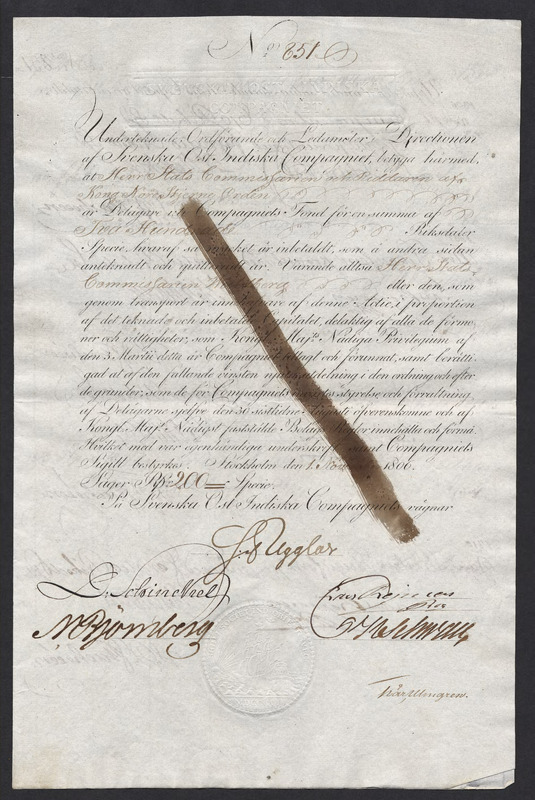 No 851.
Undertecknade, Ordförande och Ledamöter i Directionen
af Svenska Ost Indiska Compagniet, betyga härmed,
at Herr Stats Commissarien och Riddaren af
Kong. Nord Stjerne Orden
är Delägare uti Compagniets Fond för en summa af
Två Hundrade Riksdaler
Specie, hvaraf så mycket är inbetaldt, som å andra sidan
antecknadt och quitteradt är. Varande alltså Herr Stats
Commissarien eller den, som
genom transport är innehafvare af denne Actie, i proportion
af det tecknade och inbetalda Capitalet, delaktig af alla de förmo-
ner och rättigheter, som Kongl. Maj:ts Nådiga Privilegium af
den 3 Martii detta år Compagniet tillagt och förunnat, samt berätti-
gad at af den fallande vinsten njuta utdelning i den ordning och efter
de grunder, som de för Compagniets styrelse och förvaltning
af Delägarne sjelfve den 30 sistledne Augusti öfverenskomne och af
Kongl. Maj:t Nådigst faststälde innehålla och förmå.
Hvilket med vår egenhändiga underskrift samt Compagniets
Sigill bestyrkes. Stockholm den 1. November 1806.
Säger 200 Specie.
På Svenska Ost Indiska Compagniets vägnar
Ugglas
D. Schinckel
N Björnberg